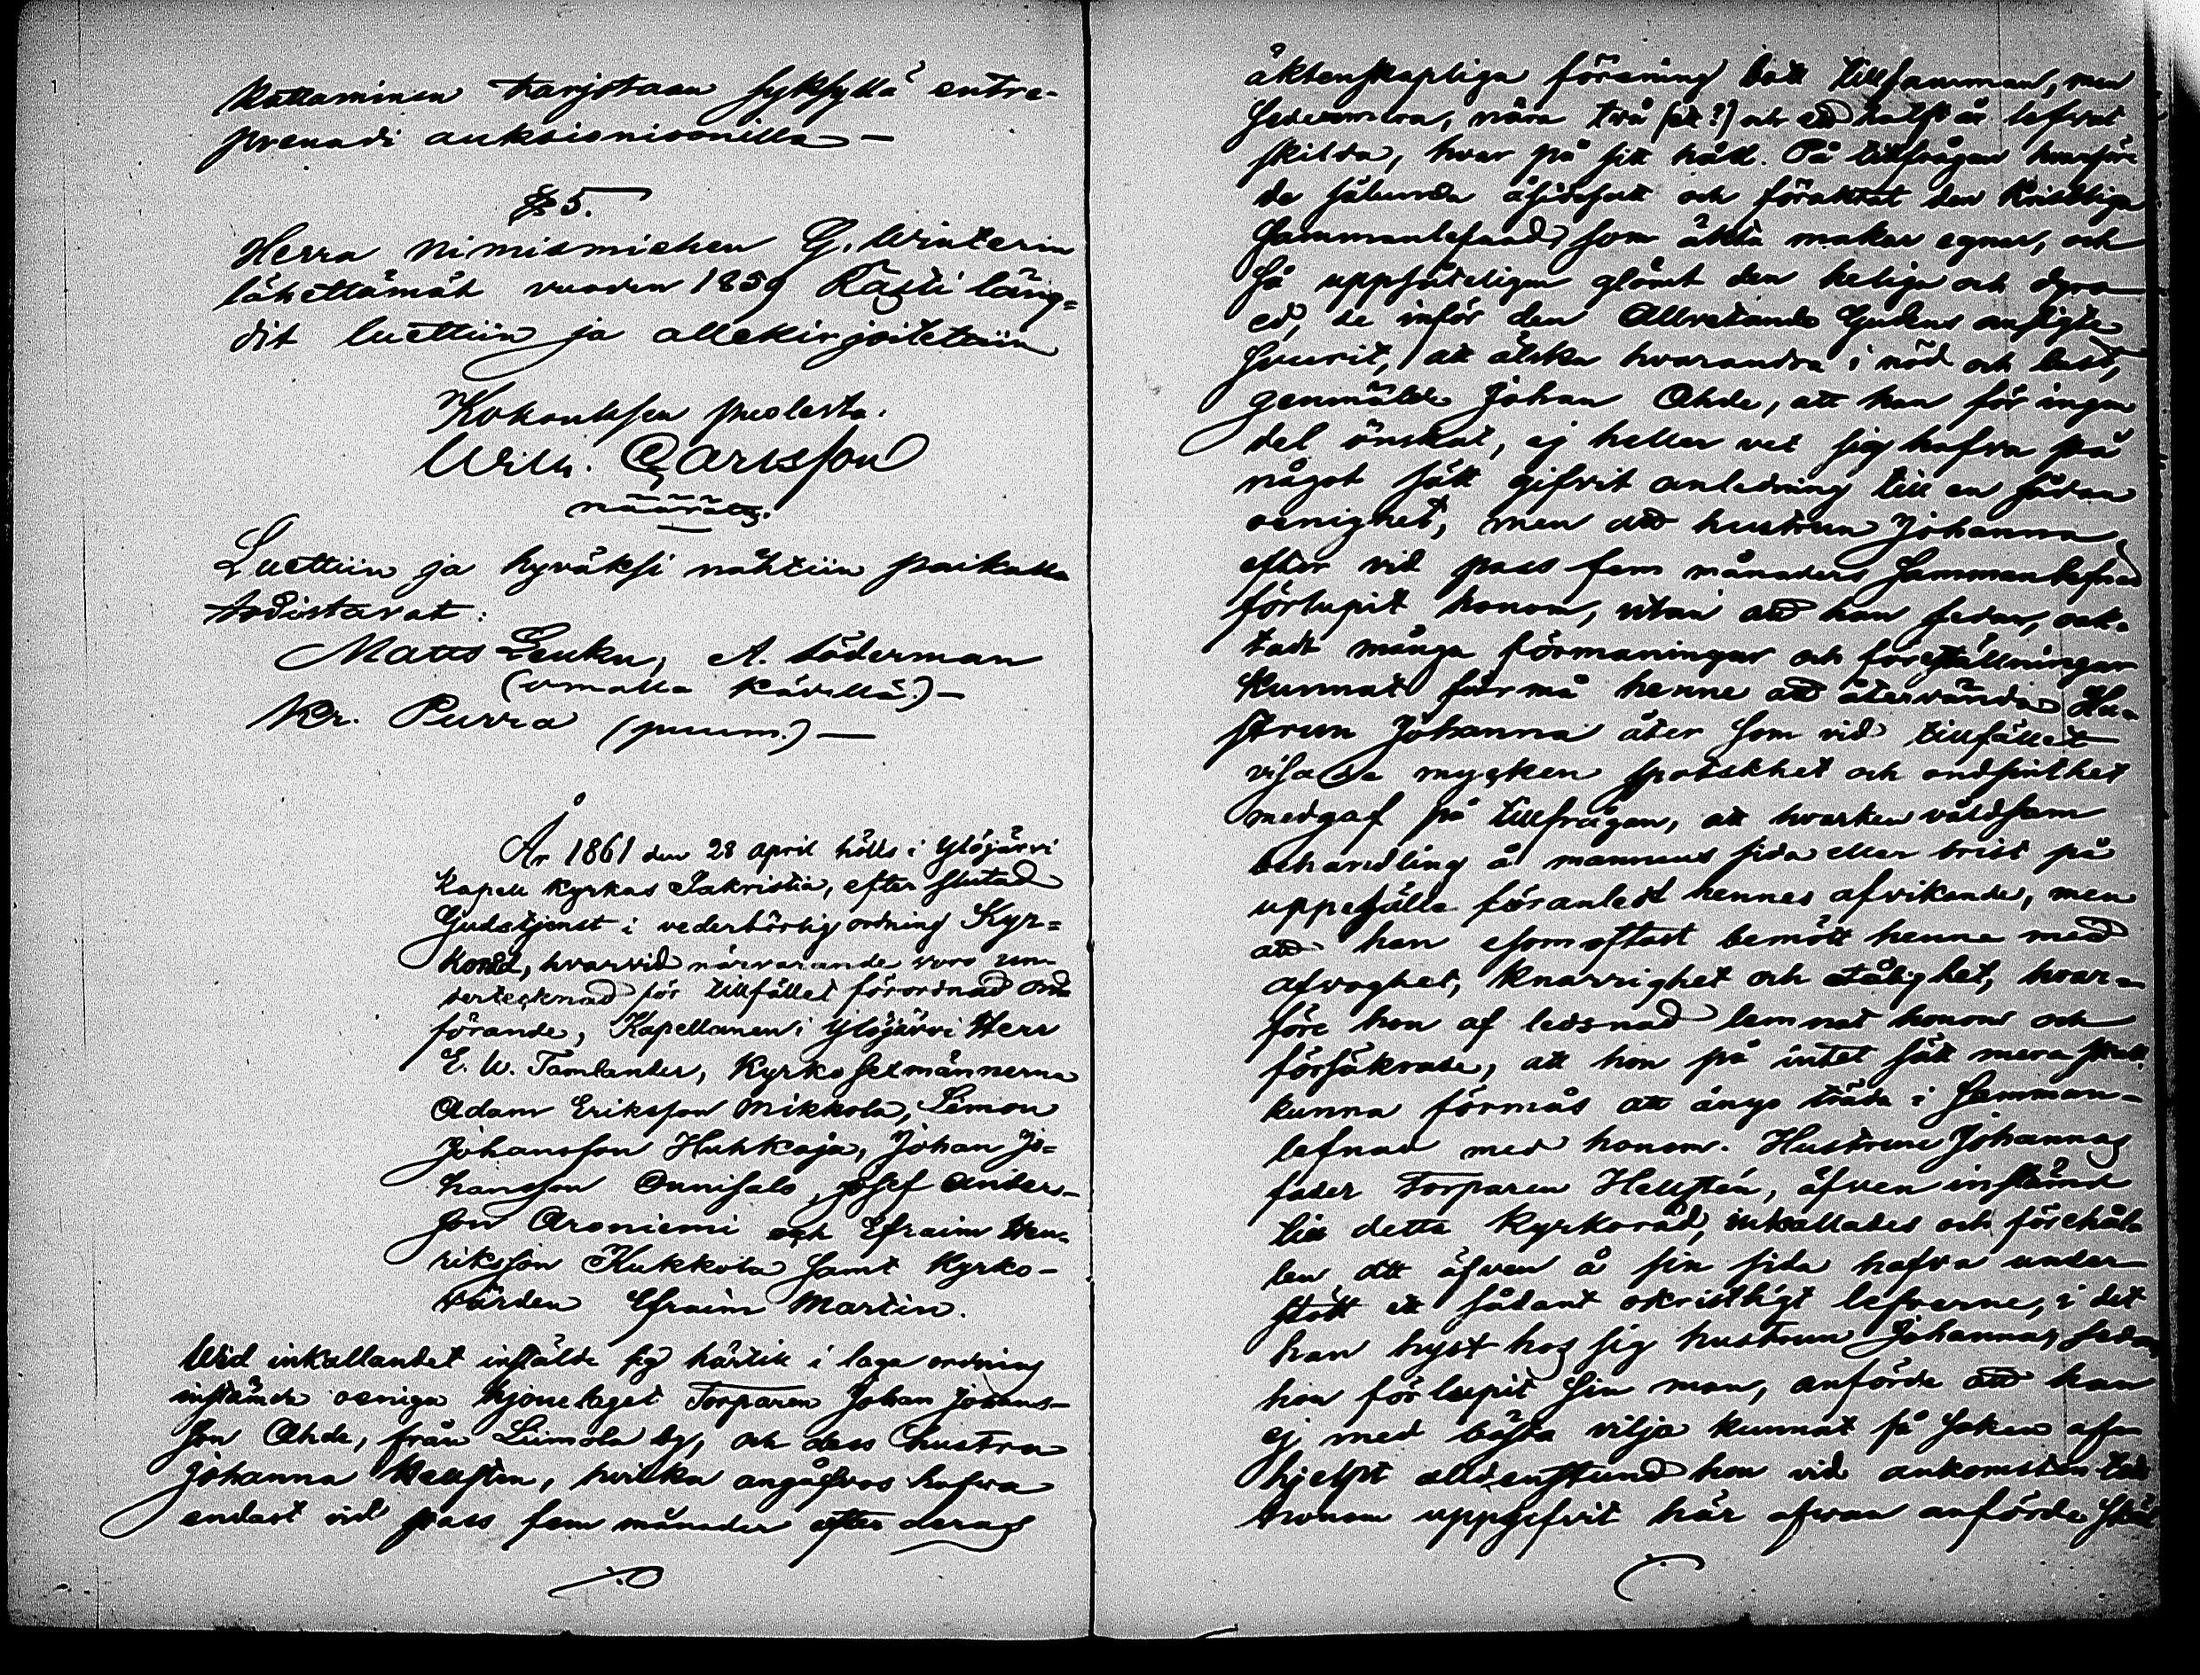 kattaminen tarjotaan syksyllä entre-
prenadi auktsionisonilla —
§ 5.
Herra Nimismiehen G. Winterin
lähettämät vuoden 1859 Rästi läng=
dit luettiin ja allekirjoitettiin
Kokouksen puolesta.
Wilh. Carlsson
määrätty.
Luettiin ja hyväksi nähtiin paikalla
todistavat:
Matts Leuku, A. Söderman
(omalla kädellä.) —
Kr. Purra (puum.) —
År 1861 den 28 april hölls i Ylöjärvi
Kapell kyrkas Sakristia, efter slutad
Gudstjenst i vederbörlig ordning Kyr=
koråd, hvarvid närvarande voro un-
dertecknad för tillfället förordnad ord-
förande, Kapellanen i Ylöjärvi Herr
E. W. Tamlander, Kyrko sexmännerna
Adam Eriksson Mikkola, Simon
Johansson Huhkaja, Johan Jo=
hansson Onnisalo, Josef Anders-
son Aroniemi och Efraim Hen-
riksson Kukkola samt Kyrko-
värden Efraim Martin.
Wid inkallandet instälde sig härtill i laga ordning
instämda oeniga hjonelaget Torparen Johan Johans-
son Ahde, från Liimola by, och dess hustru
Johanna Hellsten, hvilka angåfvos hafva
endast vid pass fem månader efter deras
äktenskapliga förening bott tillsamman, men
sedermera, nära två (ett?) och ett halft år lefvat
skilda, hvar på sitt håll. På tillfrågan hvarföre
de sålunda åsidosatt och föraktat den Kristliga
sammanlefnad, som äkta makar egnar, och
så uppsåteligen glömt den heliga och dyra
ed, de inför den Allvetande Gudens ansigte
svurit, att älska hvarandra i nöd och lust,
genmälde Johan Ahde, att han för ingen
del önskat, ej heller vet sig hafva på
något sätt gifvit anledning till en sådan
oenighet, men att hustrun Johanna
efter vid pass fem månaders sammanlefnad
förlupit honom, utan att han sedan, oak-
tadt många förmaningar och föreställningar
kunnat förmå henne att återvända. Hu-
strun Johanna åter som vid tillfället
visade mycken spotskhet och ondsinthet
medgaf på tillfrågan, att hvarken våldsam
behandling å mannens sida eller brist på
uppehälle föranledt hennes afvikande, men
att han esomoftast bemött henne med
afvoghet, knarrighet och otålighet, hvar-
före hon af ledsnad lemnat honom och
försäkrade, att hon på intet sätt mera skall
kunna förmås att ånyo träda i samman-
lefnad med honom. Hustrun Johannas
fader Torparen Hellstén, äfven instämd
till detta Kyrkoråd, inkallades och förehöls
len att äfven å sin sida hafva under-
stött ett sådant okristligt lefverne, i det
han hyst hos sig hustrun Johanna, sedan
hon förlupit sin man, anförde att han
ej med bästa vilja kunnat få saken af-
hjelpt alldenstund hon vid ankomsten till
honom uppgifvit här ofvan anförda skäl